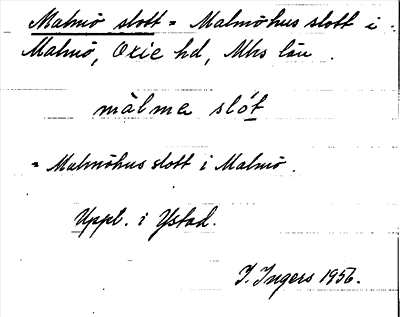 Malmö slott = Malmöhus slott i
Malmö, Oxie hd, Mhs län.
màlma slót
= Malmöhus slott i Malmö.
Uppl. i Ystad.
I. Ingers 1956.